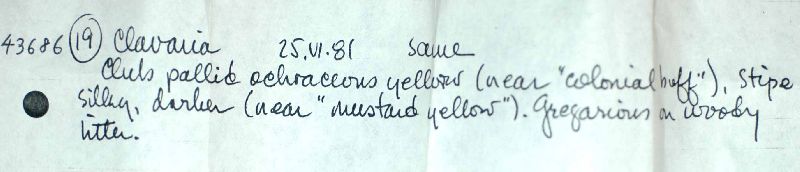 43686 (19) Clavaria 25.VI.81 same
Clubs pallid ochraceous yellow (near "colonial buff"), stipe
silky, darker (near "mustard yellow"). Gregarious on woody
litter.